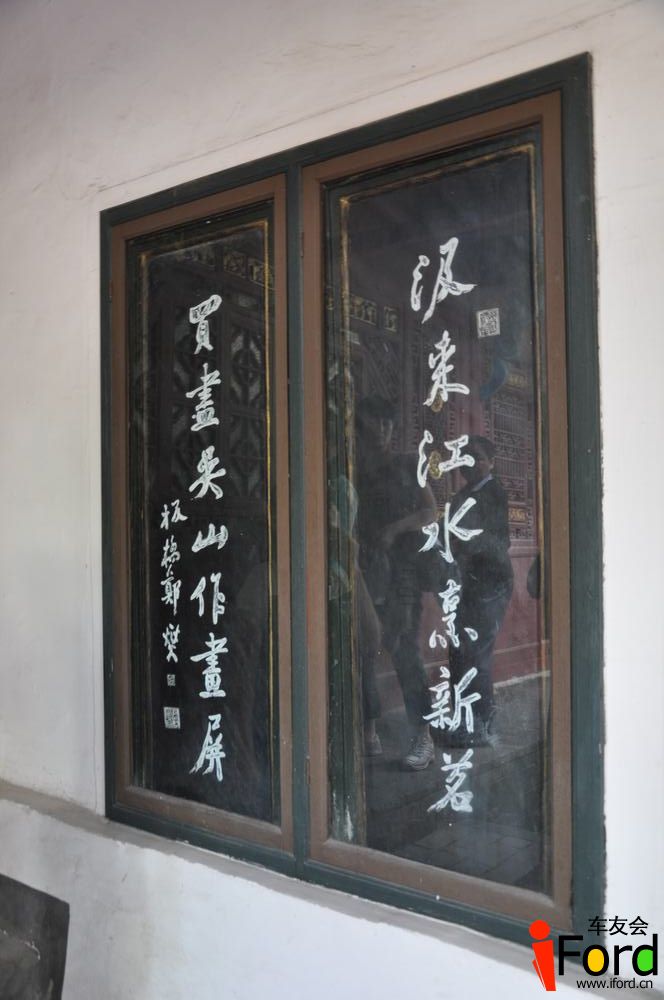 汲來江水烹新茗
買盡吳山作畫屏
板橋鄭燮
车友会
iFord
www.iford.cn